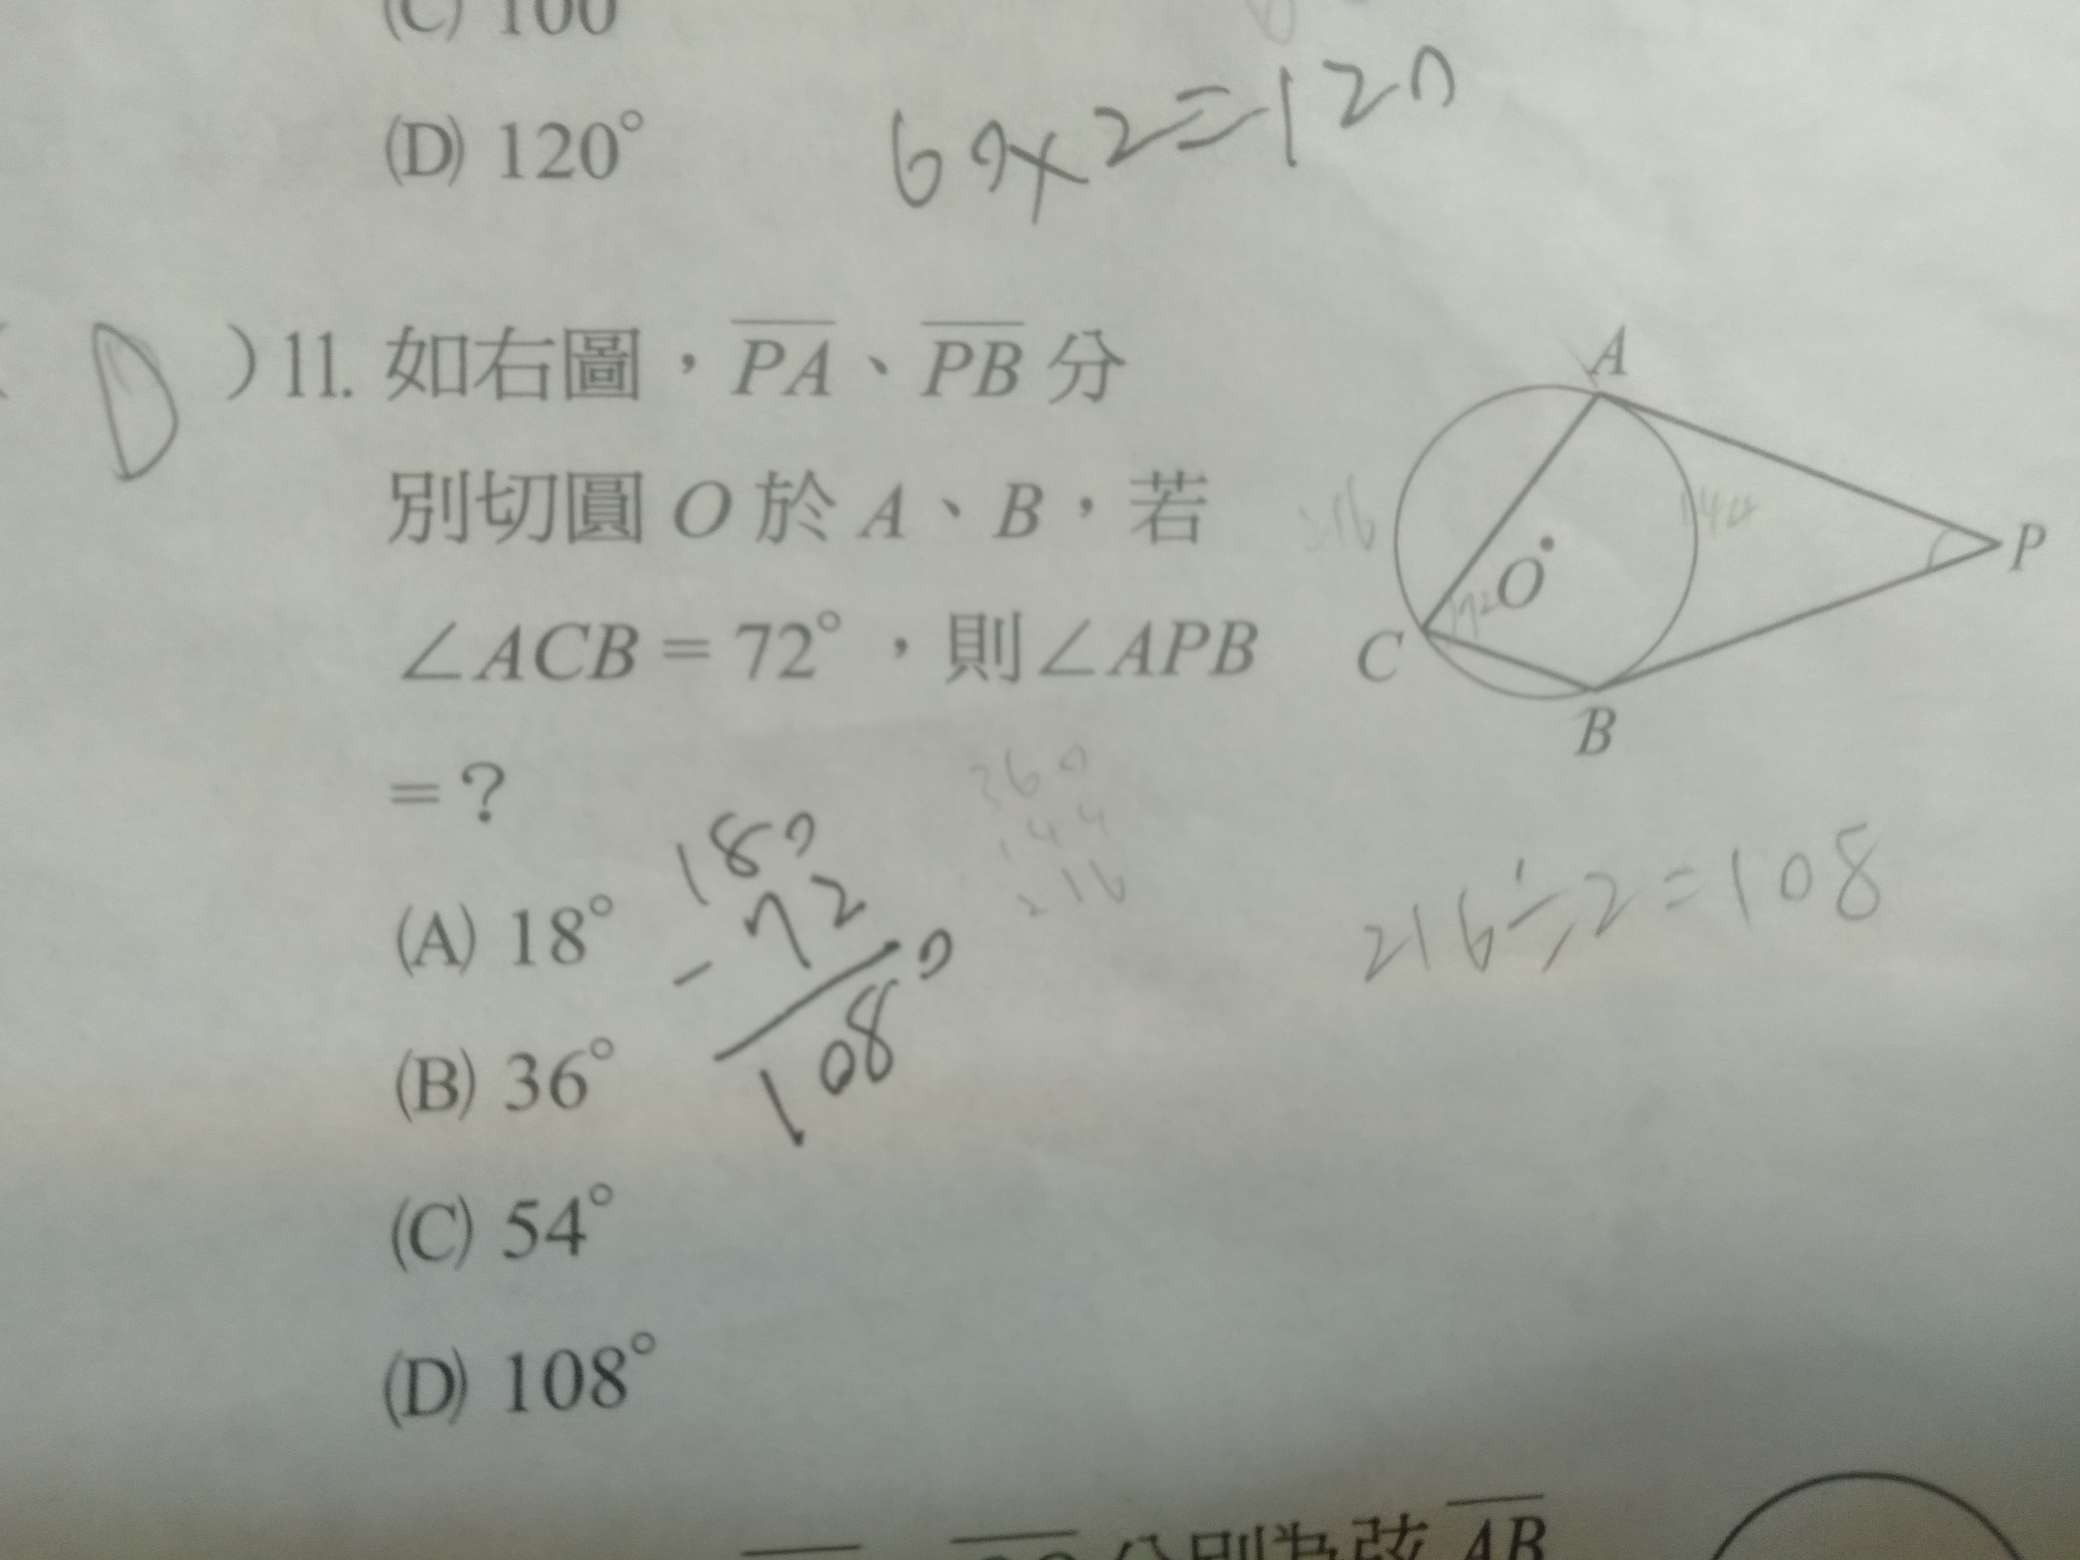 (C) 100
(D) 120°
60×2=120
(D)11. 如右圖，PA、PB 分
別切圓 O 於 A、B，若
∠ACB = 72°，則∠APB
= ?
(A) 18°
(B) 36°
(C) 54°
(D) 108°
180
- 72
108°
360
144
216
A
216
144
P
O
72
C
B
216÷2=108
分別為弦 AB